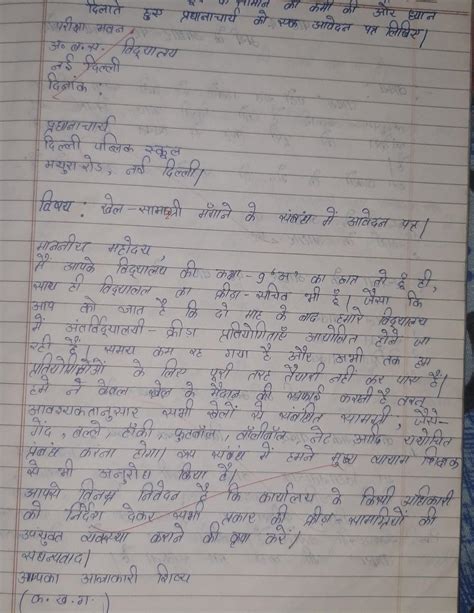 के सामान की कमी की ओर ध्यान
दिलाते हुए प्रधानाचार्य को एक आवेदन पत्र लिखिए।
परीक्षा भवन
अ. ब. स. विद्यालय
नई दिल्ली
दिनांक :
प्रधानाचार्य
दिल्ली पब्लिक स्कूल
मथुरा रोड, नई दिल्ली।
विषय : खेल-सामग्री मँगाने के संबंध में आवेदन पत्र।
माननीय महोदय,
मैं आपके विद्यालय की कक्षा-9 'अ' का छात्र तो हूँ ही,
साथ ही विद्यालय का क्रीडा-सचिव भी हूँ। जैसा कि
आप को ज्ञात है कि दो माह के बाद हमारे विद्यालय
में अंतर्विद्यालयी-क्रीडा प्रतियोगिताएँ आयोजित होने जा
रही हैं। समय कम रह गया है और अभी तक हम
प्रतियोगिताओं के लिए पूरी तरह तैयारी नहीं कर पाए हैं।
हमे न केवल खेल के मैदान की सफाई करनी है वरन्
आवश्यकतानुसार सभी खेलों से संबंधित सामग्री, जैसे-
गेंद, बल्ले हॉकी फुटबॉल वॉलीबॉल नेट आदि यथोचित
प्रबंध करना होगा। इस संबंध में हमने मुख्य व्यायाम शिक्षक
से भी अनुरोध किया है।
आपसे विनम्र निवेदन है कि कार्यालय के किसी अधिकारी
को निर्देश देकर सभी प्रकार की क्रीडा-सामग्रियों की
उपयुक्त व्यवस्था कराने की कृपा करें।
सधन्यवाद।
आपका आज्ञाकारी शिष्य
(क. ख. ग.)